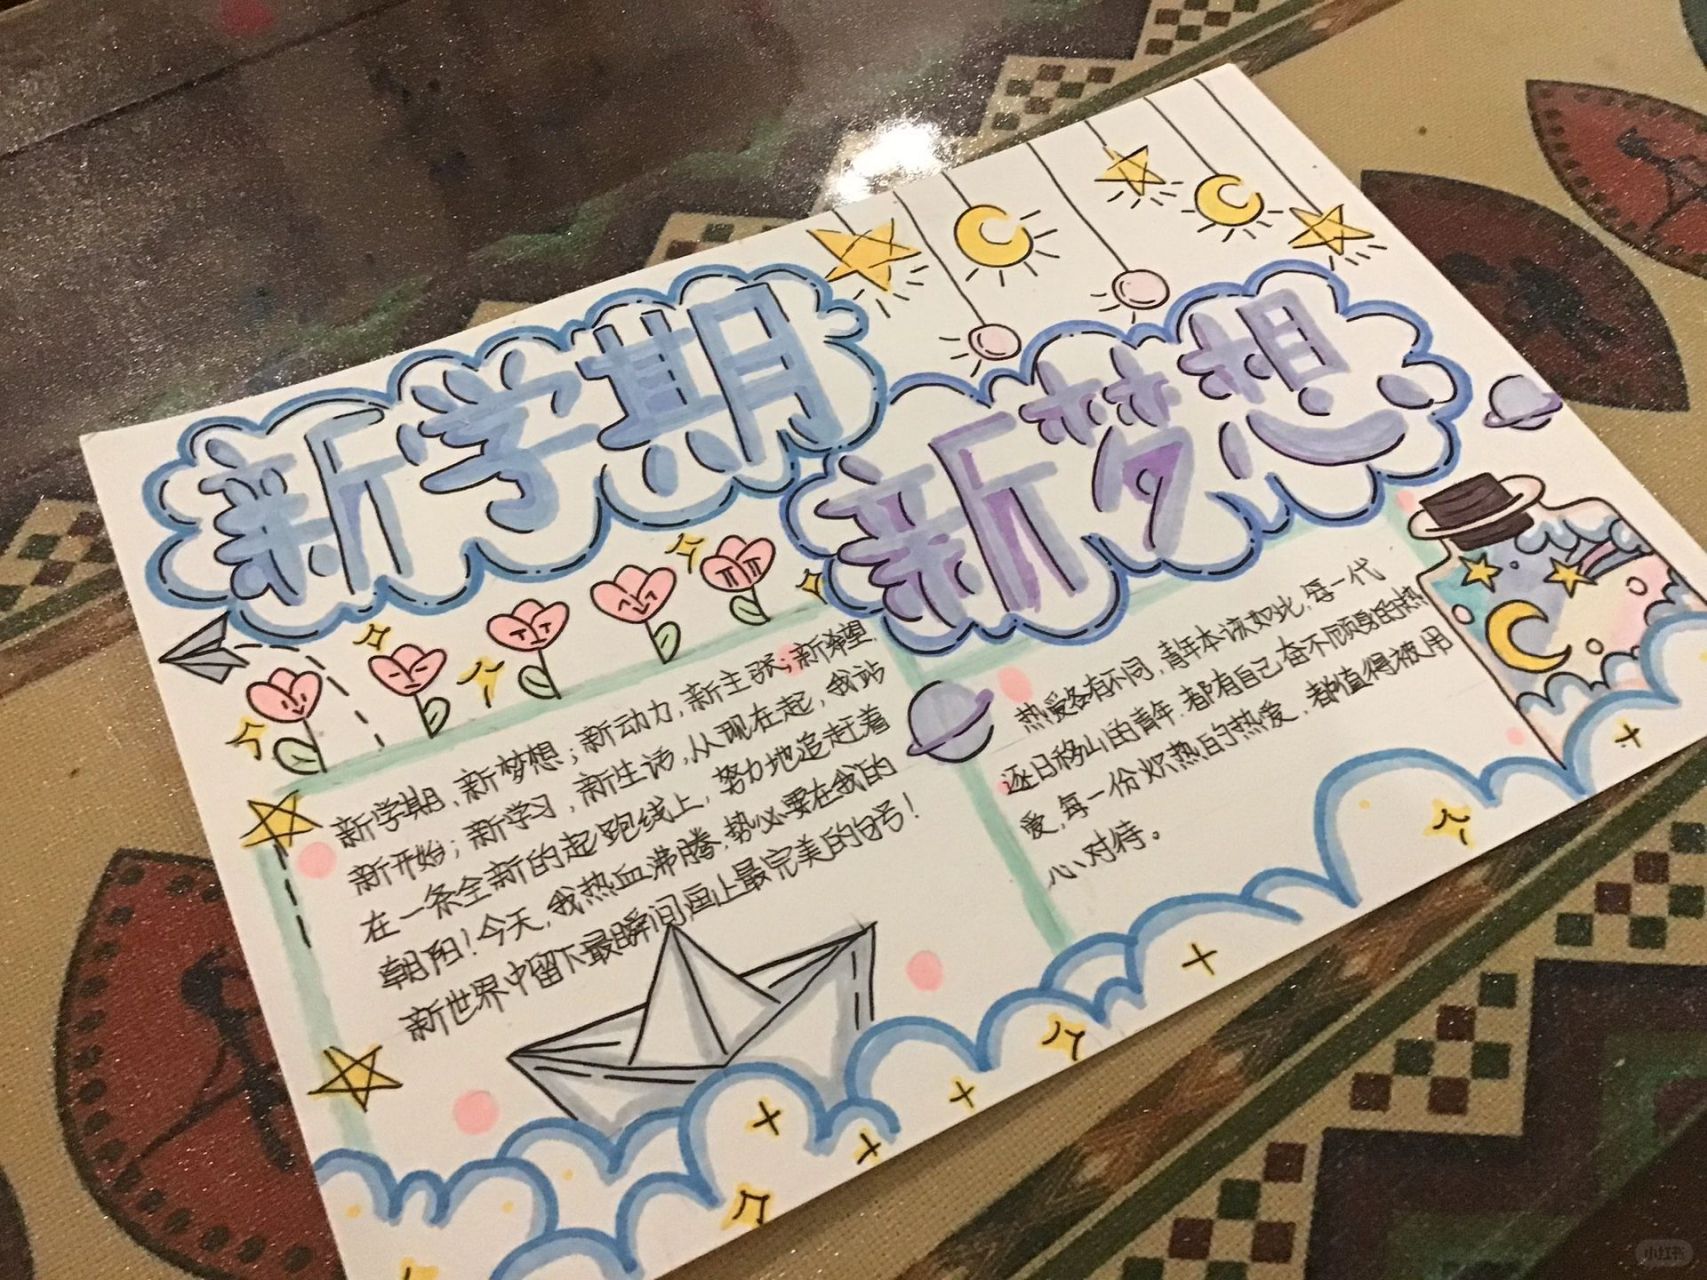 新学期
新梦想
新学期、新梦想；新动力，新主张；新希望，
新开始；新学习，新生活，从现在起，我站
在一条全新的起跑线上，努力地追赶着
朝阳！今天，我热血沸腾，势必要在我的
新世界中留下最瞬间，画上最完美的句号！
热爱各有不同，青年本该如此，每一代
逐日移山的青年，都有自己奋不顾身的热
爱，每一份炽热的热爱，都值得被用
心对待。
小红书